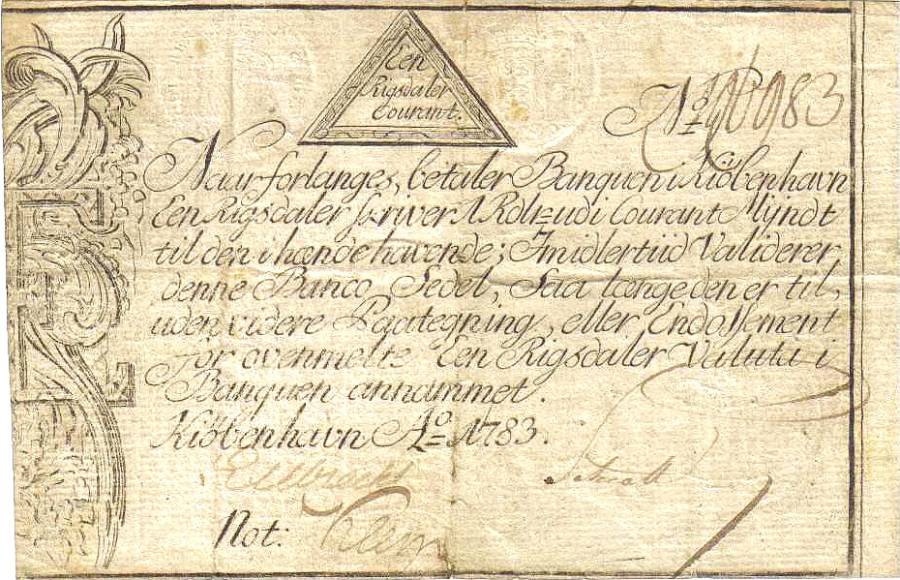 Een
Rigsdaler
Courant.
No
Naar forlanges, betaler Banquen i Kiöbenhavn
Een Rigsdaler skriver 1 Rdlr udi Courant Mÿndt
til den ihændehavende; Imidlertiid Validerer
denne Banco Sedel, Saa længe den er til,
uden videre Paategning, eller Endossement
for ovenmelte Een Rigsdaler Valuta i
Banquen annammet.
Kiöbenhavn Ao 1783.
Not: